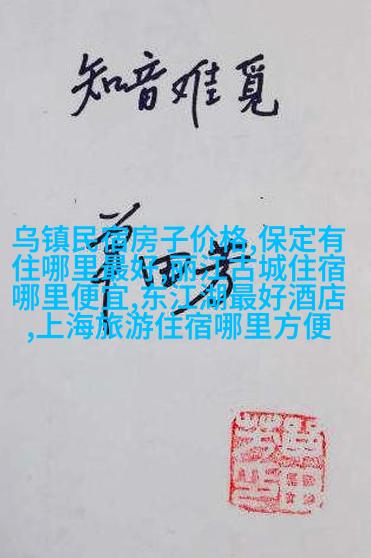 知音难觅
乌镇民宿房子价格,保定有
住哪里最好,丽江古城住宿
哪里便宜,东江湖最好酒店
,上海旅游住宿哪里方便
单田芳